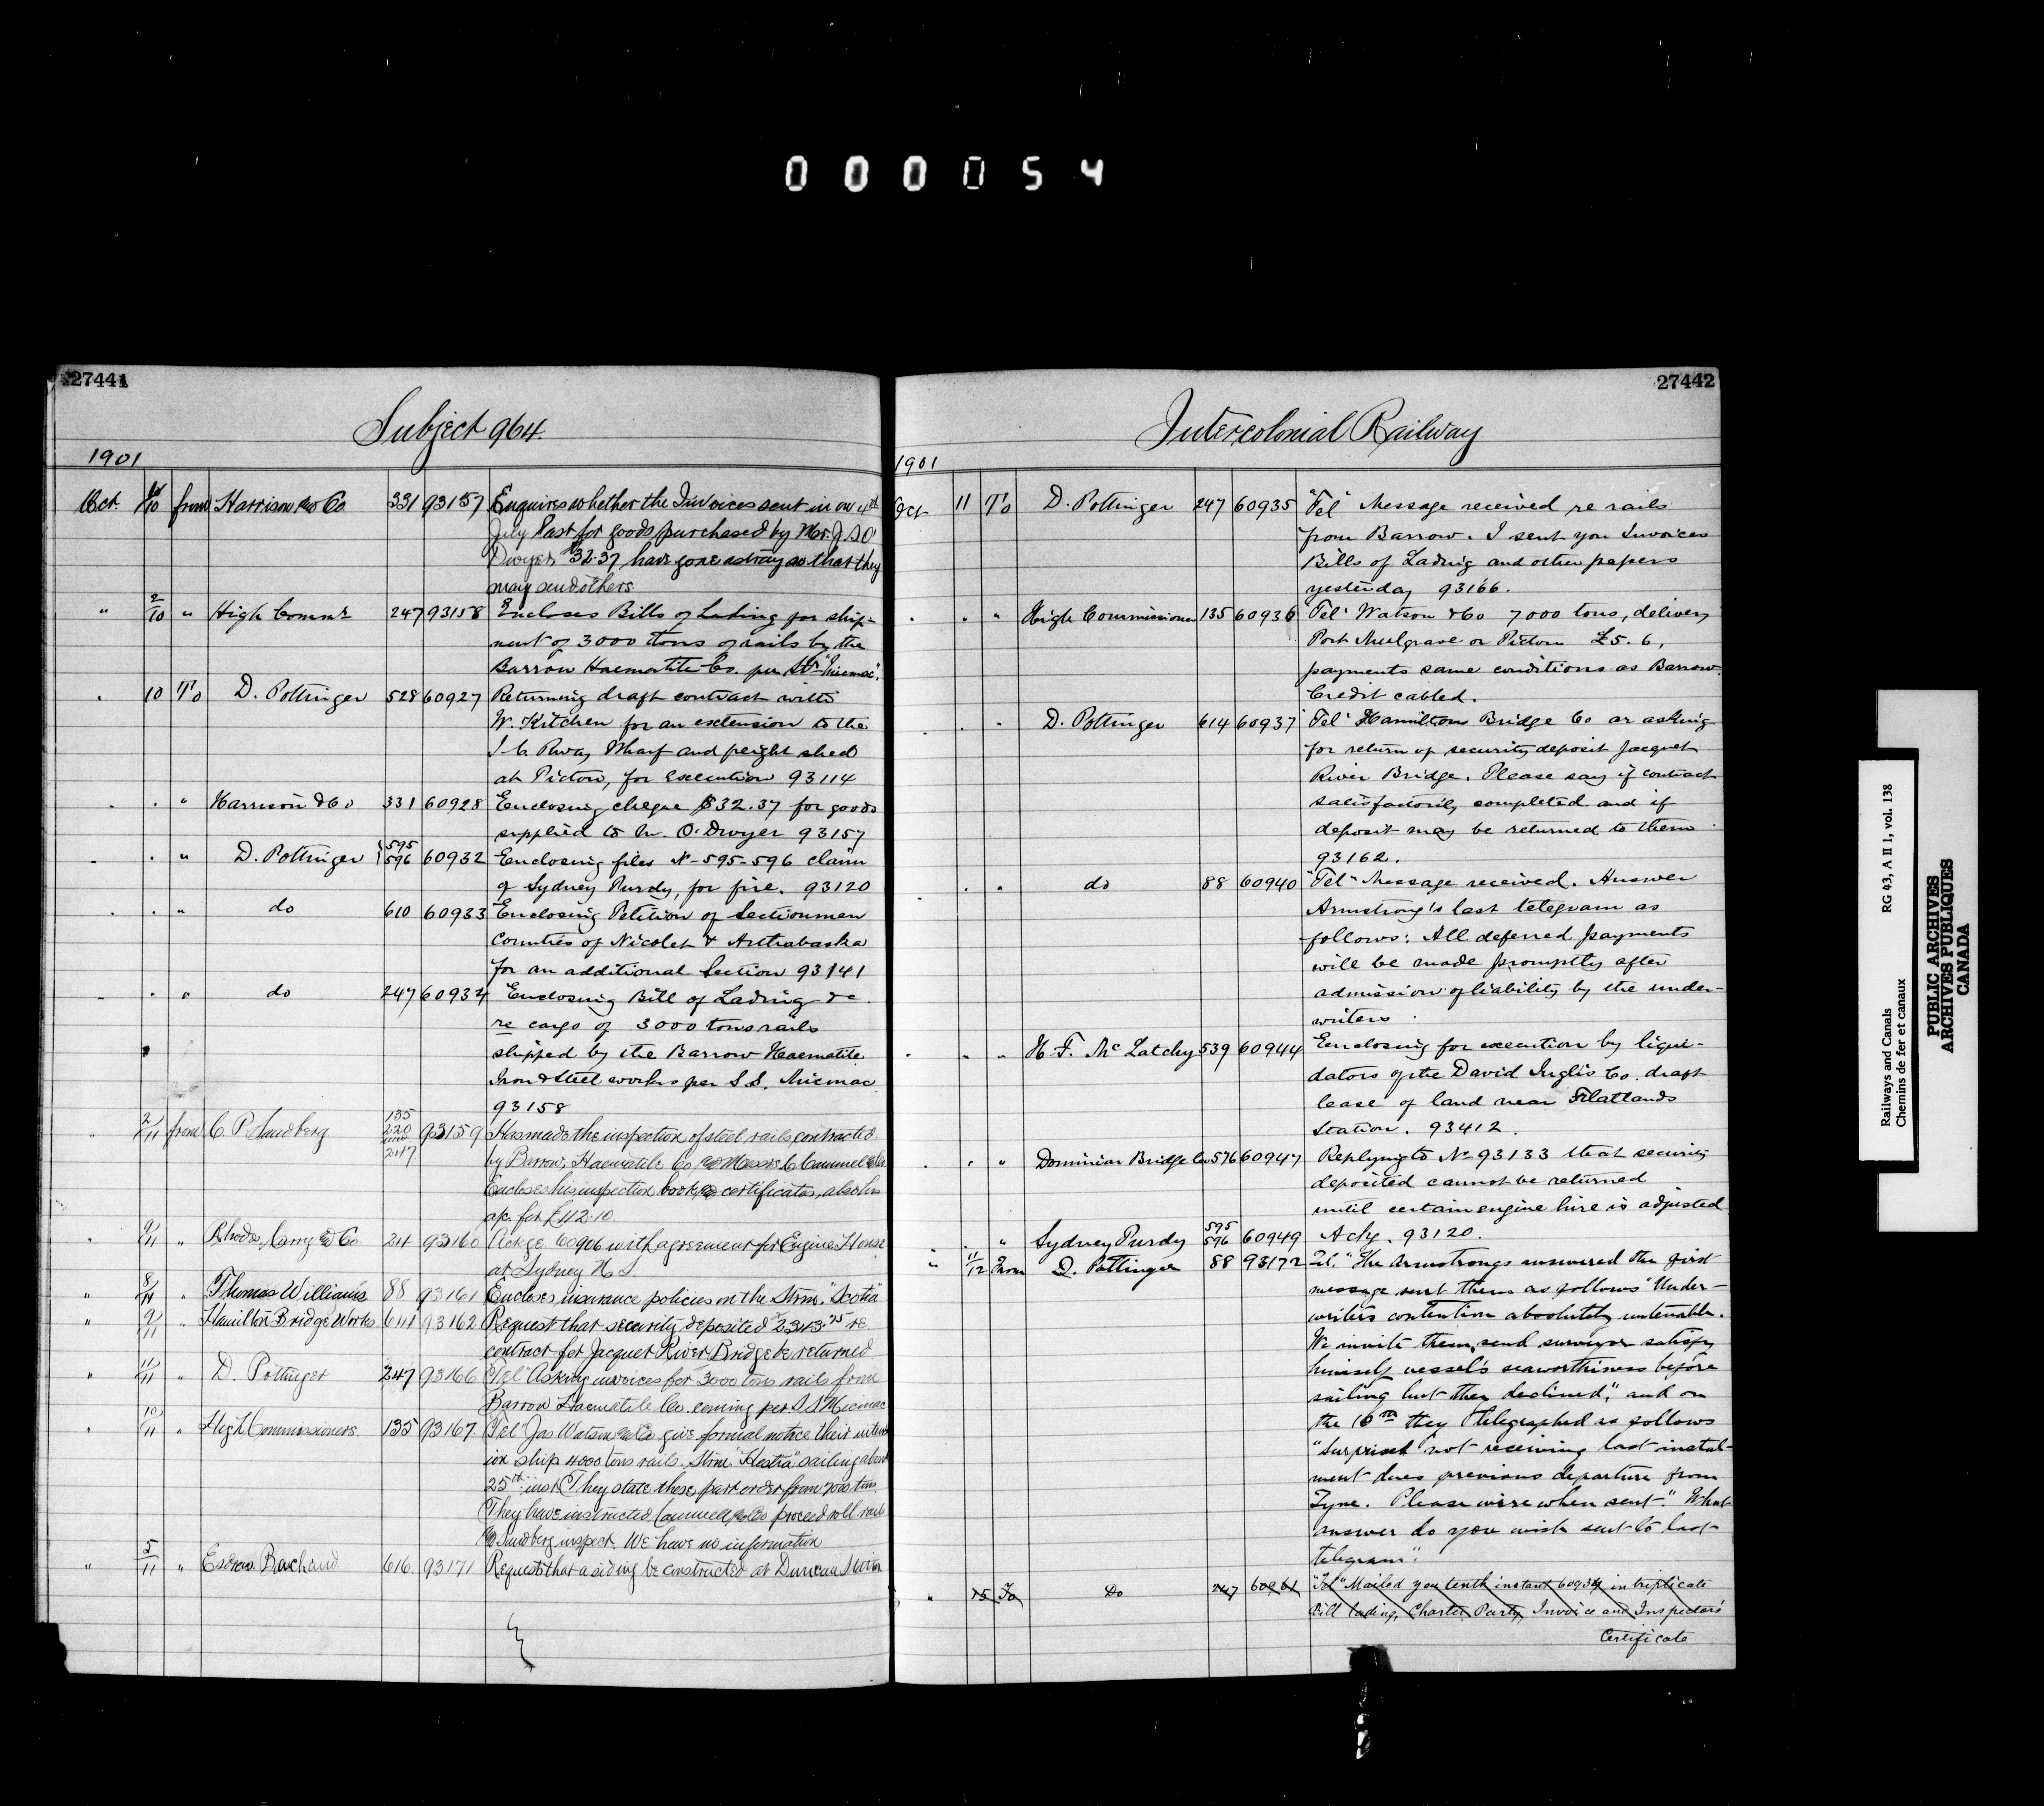 000054
27441
Subject 964.
1901
Oct. 10 from Harrison & Co 331 93157 Enquires whether the Invoices sent in on 4th
July last for goods purchased by Mr. J. S. O'
Dwyer $32.37 have gone astray so that they
may send others
" 2/10 " High Commr 247 93158 Encloses Bills of Lading for ship-
ment of 3000 tons of rails by the
Barrow Haematite Co. per Str "Micmac".
10 To D. Pottinger 528 60927 Returning draft contract with
W. Kitchen for an extension to the
I. C. Rway Wharf and freight shed
at Pictou, for execution 93114
" Harrison & Co 331 60928 Enclosing cheque $32.37 for goods
supplied to Mr. O'Dwyer 93157
" D. Pottinger 595 596 60932 Enclosing files No 595-596 claim
of Sydney Purdy, for fire. 93120
" do 610 60933 Enclosing Petition of Sectionmen
Counties of Nicolet & Arthabaska
for an additional Section 93141
" do 247 60934 Enclosing Bill of Lading &c
re cargo of 3000 tons rails
shipped by the Barrow Haematite
Iron & Steel works per S.S. Micmac
93158
2/11 from C. P. Sandberg 135 220 247 93159 Has made the inspection of steel rails contracted
by Barrow Haematite Co and Messrs C Cammell & Co.
Encloses his inspection books and certificates, also his
a/c. for £112.10
9/11 " Rhodes, Curry & Co 211 93160 Ackge 60906 with agreement for Engine House
at Sydney N.S.
" 8/11 " Thomas Williams 88 93161 Encloses insurance policies on the Stmr. "Scotia"
" 9/11 " Hamilton Bridge Works 614 93162 Request that security deposited 2343 re
contract for Jacquet River Bridge be returned
" 11/11 " D. Pottinger 247 93166 "Tel" Asking invoices for 3000 tons rails from
Barrow Haematite Co. coming per S.S. Micmac
10/11 " High Commissioners 135 93167 "Tel" Jas Watson & Co give formal notice their intent
ion ship 4000 tons rails. Stmr. "Hestia" sailing about
25th inst. They state these part order from 7000 tons
They have instructed Cammell & Co proceed roll rails
& Sandberg inspect. We have no information
" 5/11 " Esdras Bachand 616. 93171 Request that a siding be constructed at Duncan Station
27442
Intercolonial Railway
1901
Oct 11 To D. Pottinger 247 60935 "Tel" Message received re rails
from Barrow. I sent you Invoices
Bills of Lading and other papers
yesterday 93166.
" High Commissioner 135 60936 "Tel" Watson & Co 7000 tons, delivery
Port Mulgrave or Pictou £5.6,
payments same conditions as Barrow.
Credit cabled.
" D. Pottinger 614 60937 "Tel" Hamilton Bridge Co are asking
for return of security deposit Jacquet
River Bridge. Please say if contract
satisfactorily completed and if
deposit may be returned to them
93162.
" do 88 60940 "Tel" Message received. Answer
Armstrong's last telegram as
follows: All deferred payments
will be made promptly after
admission of liability by the under-
writers
" H. F. McLatchy 539 60944 Enclosing for execution by liqui-
dators of the David Inglis Co. draft
lease of land near Flatlands
Station. 93412.
" Dominion Bridge Co 576 60947 Replying to No 93133 that security
deposited cannot be returned
until certain engine hire is adjusted
" Sydney Purdy 595 596 60949 Ackg. 93120.
" 11/12 From D. Pottinger 88 93172 Tel. "The Armstrongs answered the first
message sent them as follows "Under-
writers contention absolutely untenable.
We invite them, send surveyor satisfy
himself vessel's seaworthiness before
sailing but they declined", and on
the 10th they telegraphed as follows
"Surprised not receiving last instal-
ment dues previous departure from
Tyne. Please wire when sent". What
answer do you wish sent to last
telegram".
" 15 To Do 247 60961 "Tel" Mailed you tenth instant 60934 in triplicate
Bill lading, Charter Party, Invoice and Inspectors
Certificate
Railways and Canals RG 43, A II 1, vol. 138
Chemins de fer et canaux
PUBLIC ARCHIVES
ARCHIVES PUBLIQUES
CANADA